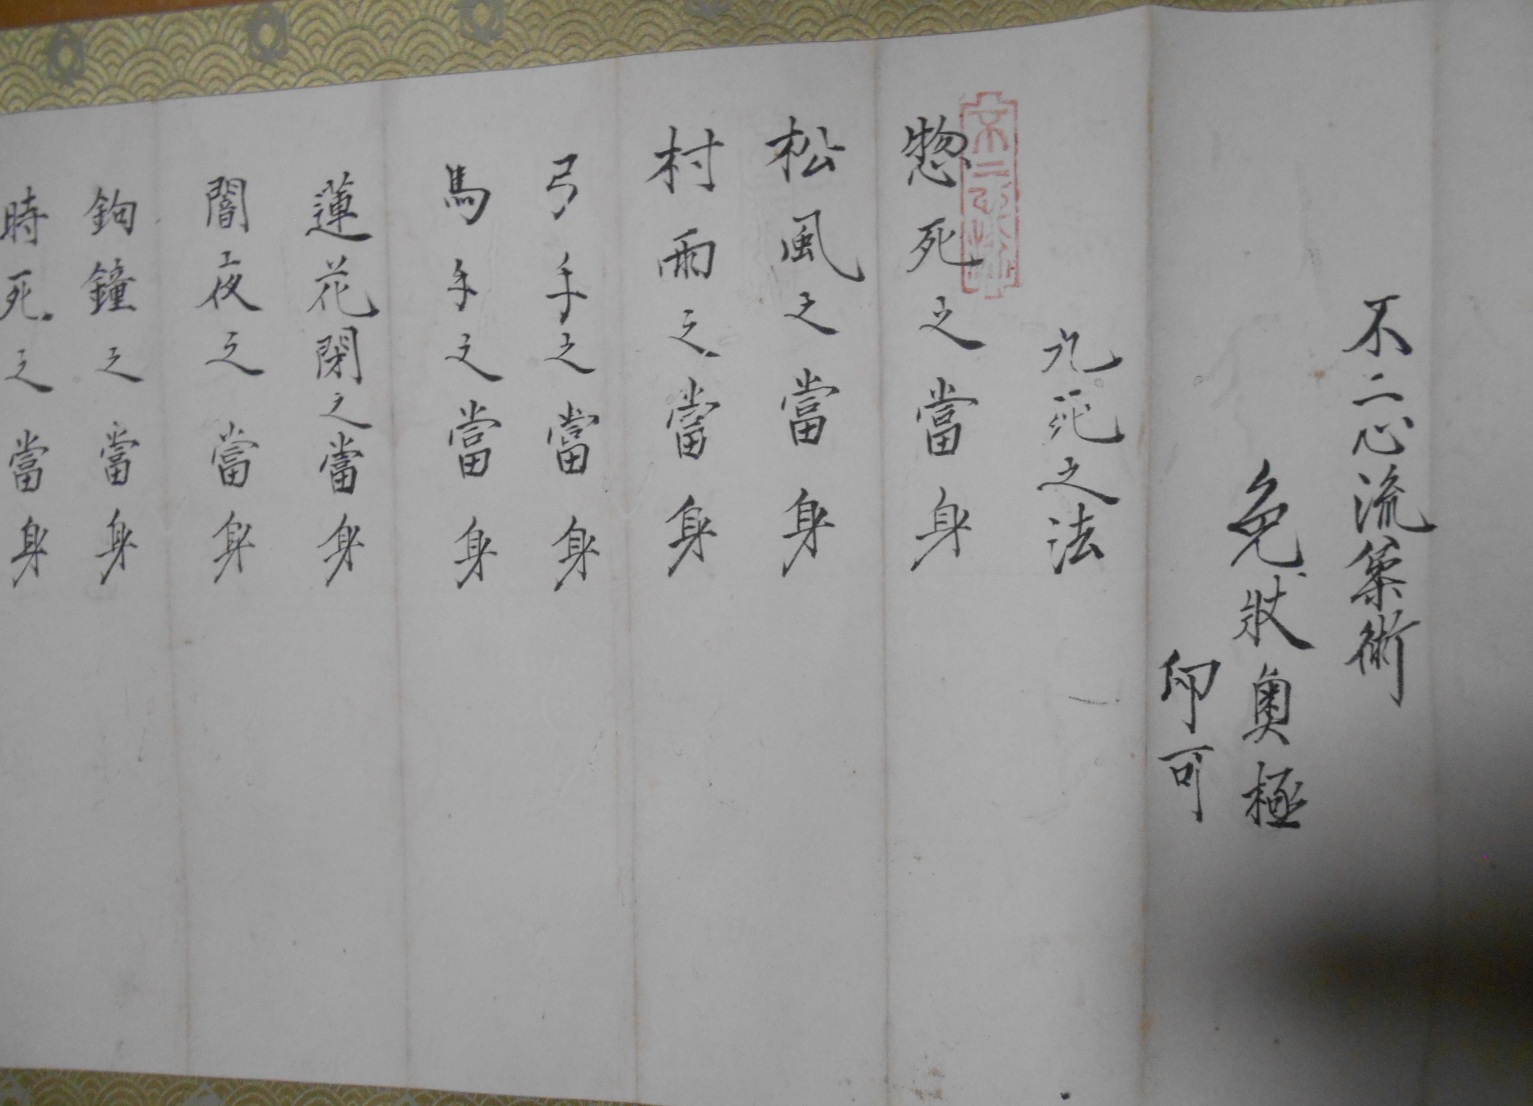 不二心流柔術
免状奥極
印可
九死之法
惣死之當身
松風之當身
村雨之當身
弓手之當身
馬手之當身
蓮花閉之當身
闇夜之當身
鉤鐘之當身
時死之當身